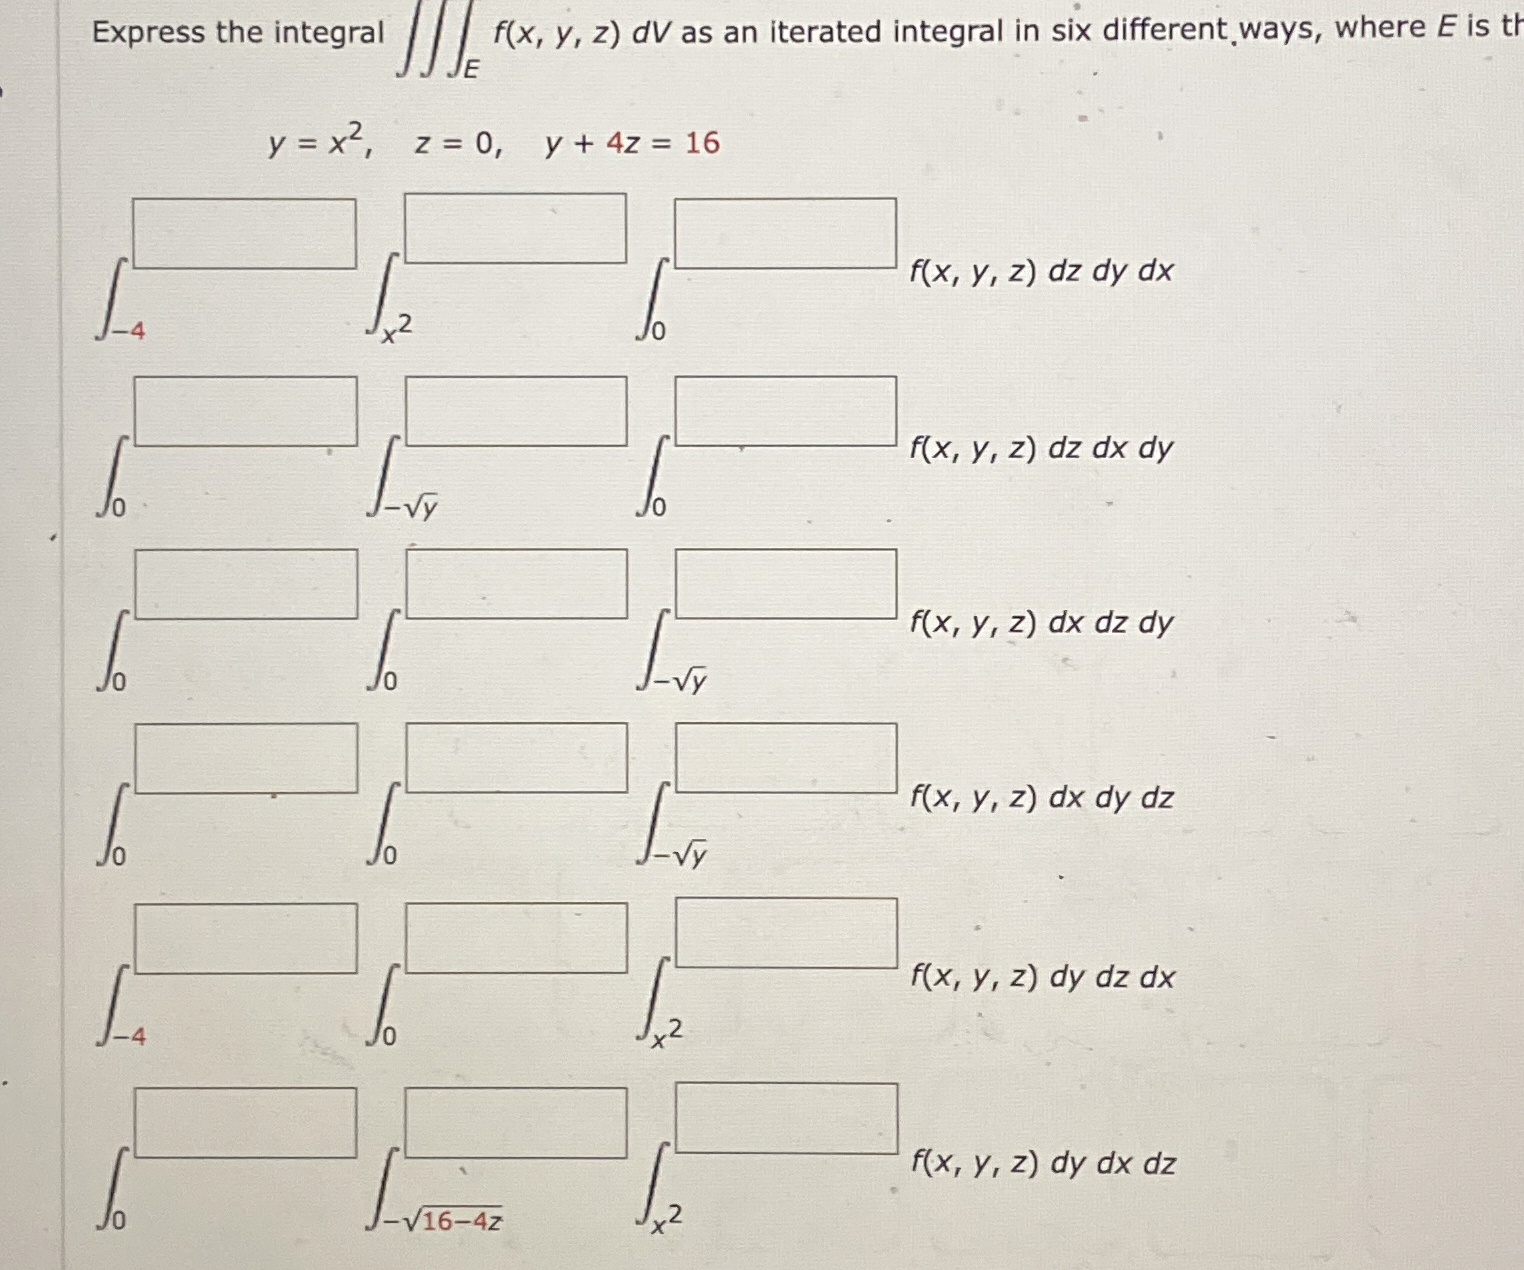 Express the integral ∭_E f(x, y, z) dV as an iterated integral in six different ways, where E is
y = x², z = 0, y + 4z = 16
∫_{-4} ∫_{x²} ∫_0 f(x, y, z) dz dy dx
∫_0 ∫_{-√y} ∫_0 f(x, y, z) dz dx dy
∫_0 ∫_0 ∫_{-√y} f(x, y, z) dx dz dy
∫_0 ∫_0 ∫_{-√y} f(x, y, z) dx dy dz
∫_{-4} ∫_0 ∫_{x²} f(x, y, z) dy dz dx
∫_0 ∫_{-√(16-4z)} ∫_{x²} f(x, y, z) dy dx dz